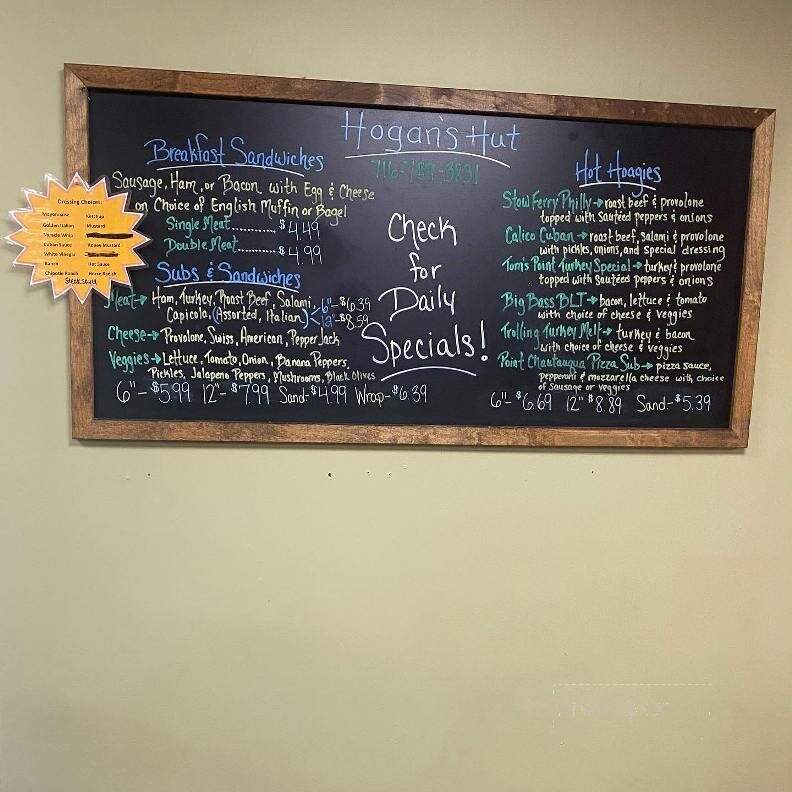 Hogan's Hut
716-789-3831
Breakfast Sandwiches
Sausage, Ham, or Bacon with Egg & Cheese
on Choice of English Muffin or Bagel
Single Meat......... $4.49
Double Meat......... $4.99
Subs & Sandwiches
Meat→ Ham, Turkey, Roast Beef, Salami,
Capicola, (Assorted, Italian) < 6"-$6.39
12"-$8.59
Cheese→ Provolone, Swiss, American, Pepper Jack
Veggies→ Lettuce, Tomato, Onion, Banana Peppers,
Pickles, Jalapeno Peppers, Mushrooms, Black Olives
6"-$5.99 12"-$7.99 Sand-$4.99 Wrap-$6.39
Check
for
Daily
Specials!
Hot Hoagies
Stow Ferry Philly→ roast beef & provolone
topped with Sautéed peppers & onions
Calico Cuban→ roast beef, salami & provolone
with pickles, onions, and special dressing
Tom's Point Turkey Special→ turkey & provolone
topped with Sautéed peppers & onions
Big Bass BLT→ bacon, lettuce & tomato
with choice of cheese & veggies
Trolling Turkey Melt→ turkey & bacon
with choice of cheese & veggies
Point Chautauqua Pizza Sub→ pizza sauce,
pepperoni & mozzarella cheese with choice
of sausage or veggies
6"-$6.69 12"$8.89 Sand-$5.39
Dressing Choices:
Mayonnaise Ketchup
Golden Italian Mustard
Miracle Whip
Cuban Sauce Honey Mustard
White Vinegar
Ranch Hot Sauce
Chipotle Ranch Horse Radish
Steak Sauce